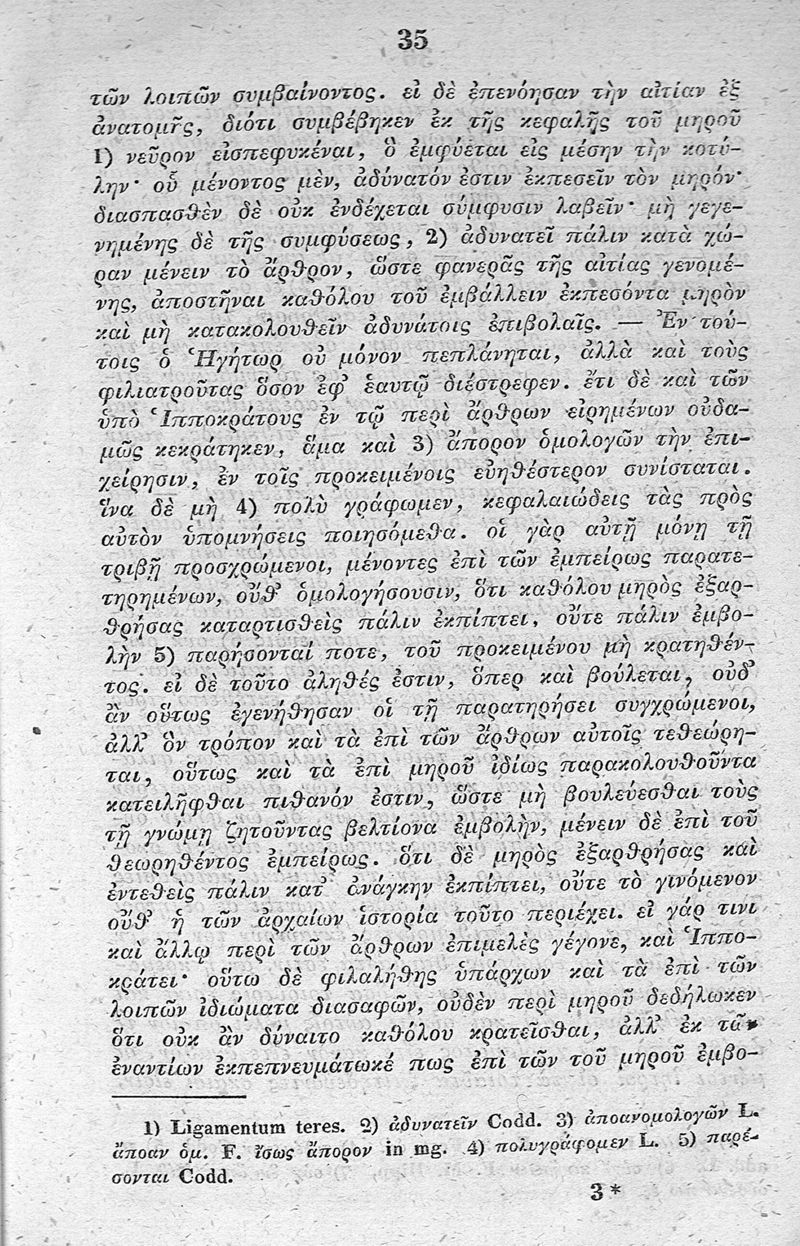 35
τῶν λοιπῶν συμβαίνοντος. εἰ δὲ ἐπενόησαν τὴν αἰτίαν ἐξ
ἀνατομῆς, διότι συμβέβηκεν ἐκ τῆς κεφαλῆς τοῦ μηροῦ
1) νεῦρον εἰσπεφυκέναι, ὃ ἐμφύεται εἰς μέσην τὴν κοτύ-
λην· οὗ μένοντος μὲν, ἀδύνατόν ἐστιν ἐκπεσεῖν τὸν μηρόν·
διασπασθὲν δὲ οὐκ ἐνδέχεται σύμφυσιν λαβεῖν· μὴ γεγε-
νημένης δὲ τῆς συμφύσεως, 2) ἀδυνατεῖ πάλιν κατὰ χώ-
ραν μένειν τὸ ἄρθρον, ὥστε φανερᾶς τῆς αἰτίας γενομέ-
νης, ἀποστῆναι καθόλου τοῦ ἐμβάλλειν ἐκπεσόντα μηρὸν
καὶ μὴ κατακολουθεῖν ἀδυνάτοις ἐπιβολαῖς. — Ἐν τού-
τοις ὁ Ἡγήτωρ οὐ μόνον πεπλάνηται, ἀλλὰ καὶ τοὺς
φιλιατροῦτας ὅσον ἐφ᾽ ἑαυτῷ διέστρεφεν. ἔτι δὲ καὶ τῶν
ὑπὸ Ἱπποκράτους ἐν τῷ περὶ ἄρθρων εἰρημένων οὐδα-
μῶς κεκράτηκεν, ἅμα καὶ 3) ἄπορον ὁμολογῶν τὴν ἐπι-
χείρησιν, ἐν τοῖς προκειμένοις εὐηθέστερον συνίσταται.
ἵνα δὲ μὴ 4) πολὺ γράφωμεν, κεφαλαιώδεις τὰς πρὸς
αὐτὸν ὑπομνήσεις ποιησόμεθα. οἱ γὰρ αὐτῇ μόνῃ τῇ
τριβῇ προσχρώμενοι, μένοντες ἐπὶ τῶν ἐμπείρως παρατε-
τηρημένων, οὔθ᾽ ὁμολογήσουσιν, ὅτι καθόλου μηρὸς ἐξαρ-
θρήσας καταρτισθεὶς πάλιν ἐκπίπτει, οὔτε πάλιν ἐμβο-
λὴν 5) παρήσονταί ποτε, τοῦ προκειμένου μὴ κρατηθέν-
τος. εἰ δὲ τοῦτο ἀληθές ἐστιν, ὅπερ καὶ βούλεται, οὐδ᾽
ἂν οὕτως ἐγενήθησαν οἱ τῇ παρατηρήσει συγχρώμενοι,
ἀλλ᾽ ὃν τρόπον καὶ τὰ ἐπὶ τῶν ἄρθρων αὐτοῖς τεθεώρη-
ται, οὕτως καὶ τὰ ἐπὶ μηροῦ ἰδίως παρακολουθοῦντα
κατειλῆφθαι πιθανόν ἐστιν, ὥστε μὴ βουλεύεσθαι τοὺς
τῇ γνώμῃ ζητοῦντας βελτίονα ἐμβολὴν, μένειν δὲ ἐπὶ τοῦ
θεωρηθέντος ἐμπείρως. ὅτι δὲ μηρὸς ἐξαρθρήσας καὶ
ἐντεθεὶς πάλιν κατ᾽ ἀνάγκην ἐκπίπτει, οὔτε τὸ γινόμενον
οὔθ᾽ ἡ τῶν ἀρχαίων ἱστορία τοῦτο περιέχει. εἰ γάρ τινι
καὶ ἄλλῳ περὶ τῶν ἄρθρων ἐπιμελὲς γέγονε, καὶ Ἱππο-
κράτει· οὕτω δὲ φιλαλήθης ὑπάρχων καὶ τὰ ἐπὶ τῶν
λοιπῶν ἰδιώματα διασαφῶν, οὐδὲν περὶ μηροῦ δεδήλωκεν
ὅτι οὐκ ἂν δύναιτο καθόλου κρατεῖσθαι, ἀλλ᾽ ἐκ τῶν
ἐναντίων ἐκπεπνευμάτωκέ πως ἐπὶ τῶν τοῦ μηροῦ ἐμβο-
1) Ligamentum teres. 2) ἀδυνατεῖν Codd. 3) ἀποανομολογῶν L.
ἄποαν ὁμ. F. ἴσως ἄπορον in mg. 4) πολυγράφομεν L. 5) παρέ-
σονται Codd.
3*